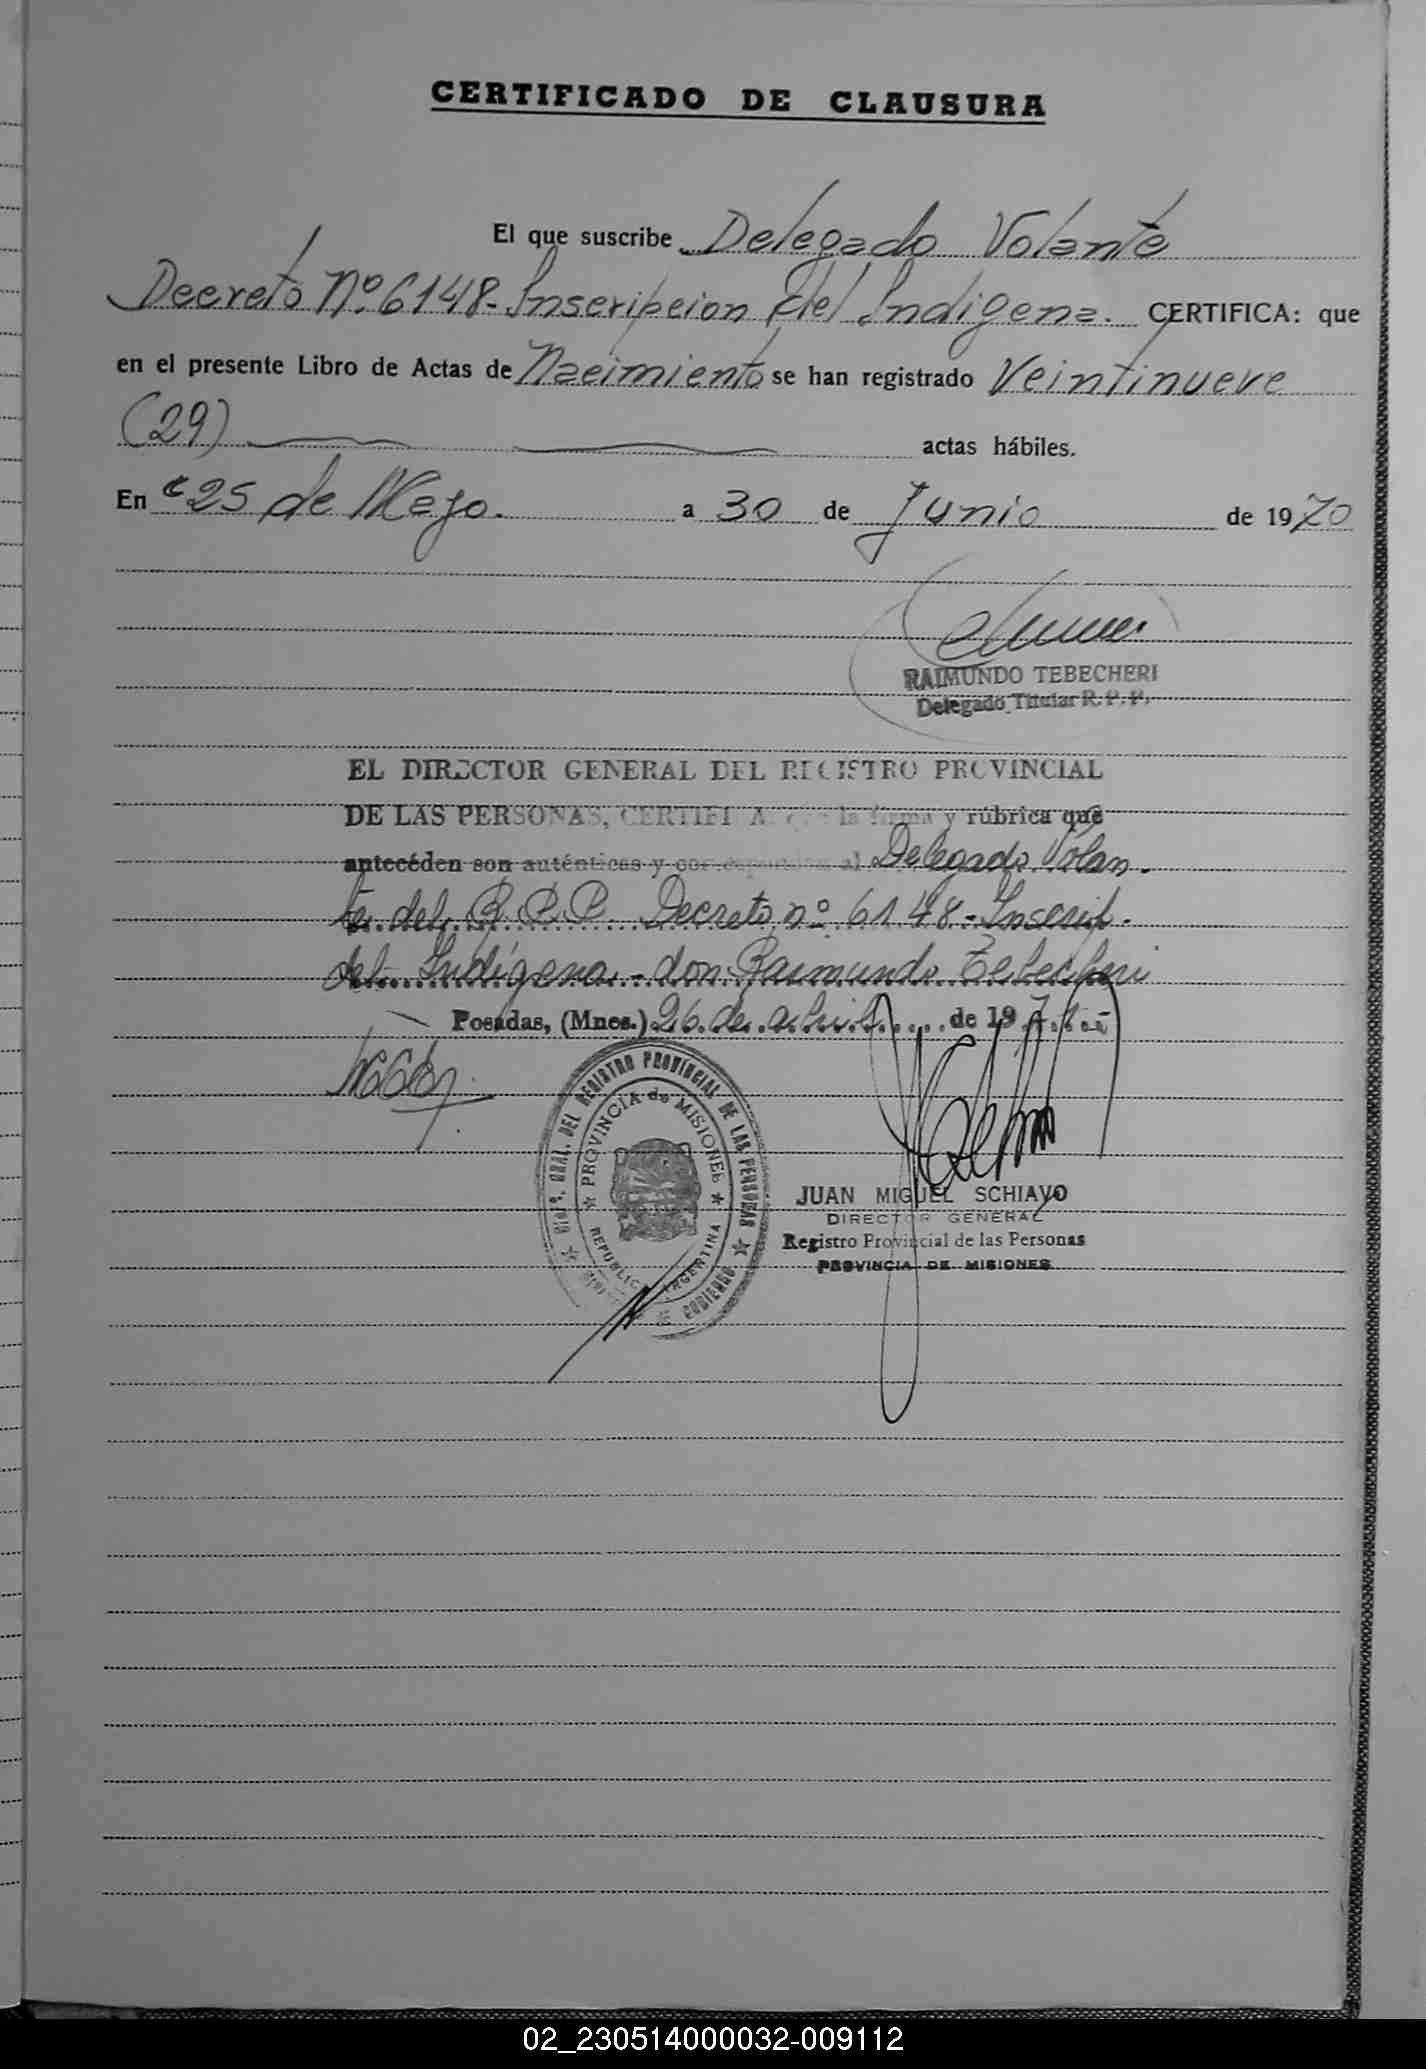 CERTIFICADO DE CLAUSURA
El que suscribe Delegado Volante
Decreto Nº 6148- Inscripcion del Indigena. CERTIFICA: que
en el presente Libro de Actas de Nacimiento se han registrado Veintinueve
(29) actas hábiles.
En 25 de Mayo. a 30 de Junio de 1970
RAIMUNDO TEBECHERI
Delegado Titular R. P. P.
EL DIRECTOR GENERAL DEL REGISTRO PROVINCIAL
DE LAS PERSONAS, CERTIFICA que la firma y rúbrica que
anteceden son auténticas y corresponden al Delegado Volan-
te del R.P.P. Decreto nº 6148- Inscrip.
del Indígena - don Raimundo Tebecheri
Posadas, (Mnes.) 26 de abril de 197
REGISTRO PROVINCIAL DE LAS PERSONAS
GRAL. DEL
PROVINCIA de MISIONES
REPUBLICA ARGENTINA
GOBIERNO
JUAN MIGUEL SCHIAVO
DIRECTOR GENERAL
Registro Provincial de las Personas
PROVINCIA DE MISIONES
02_230514000032-009112